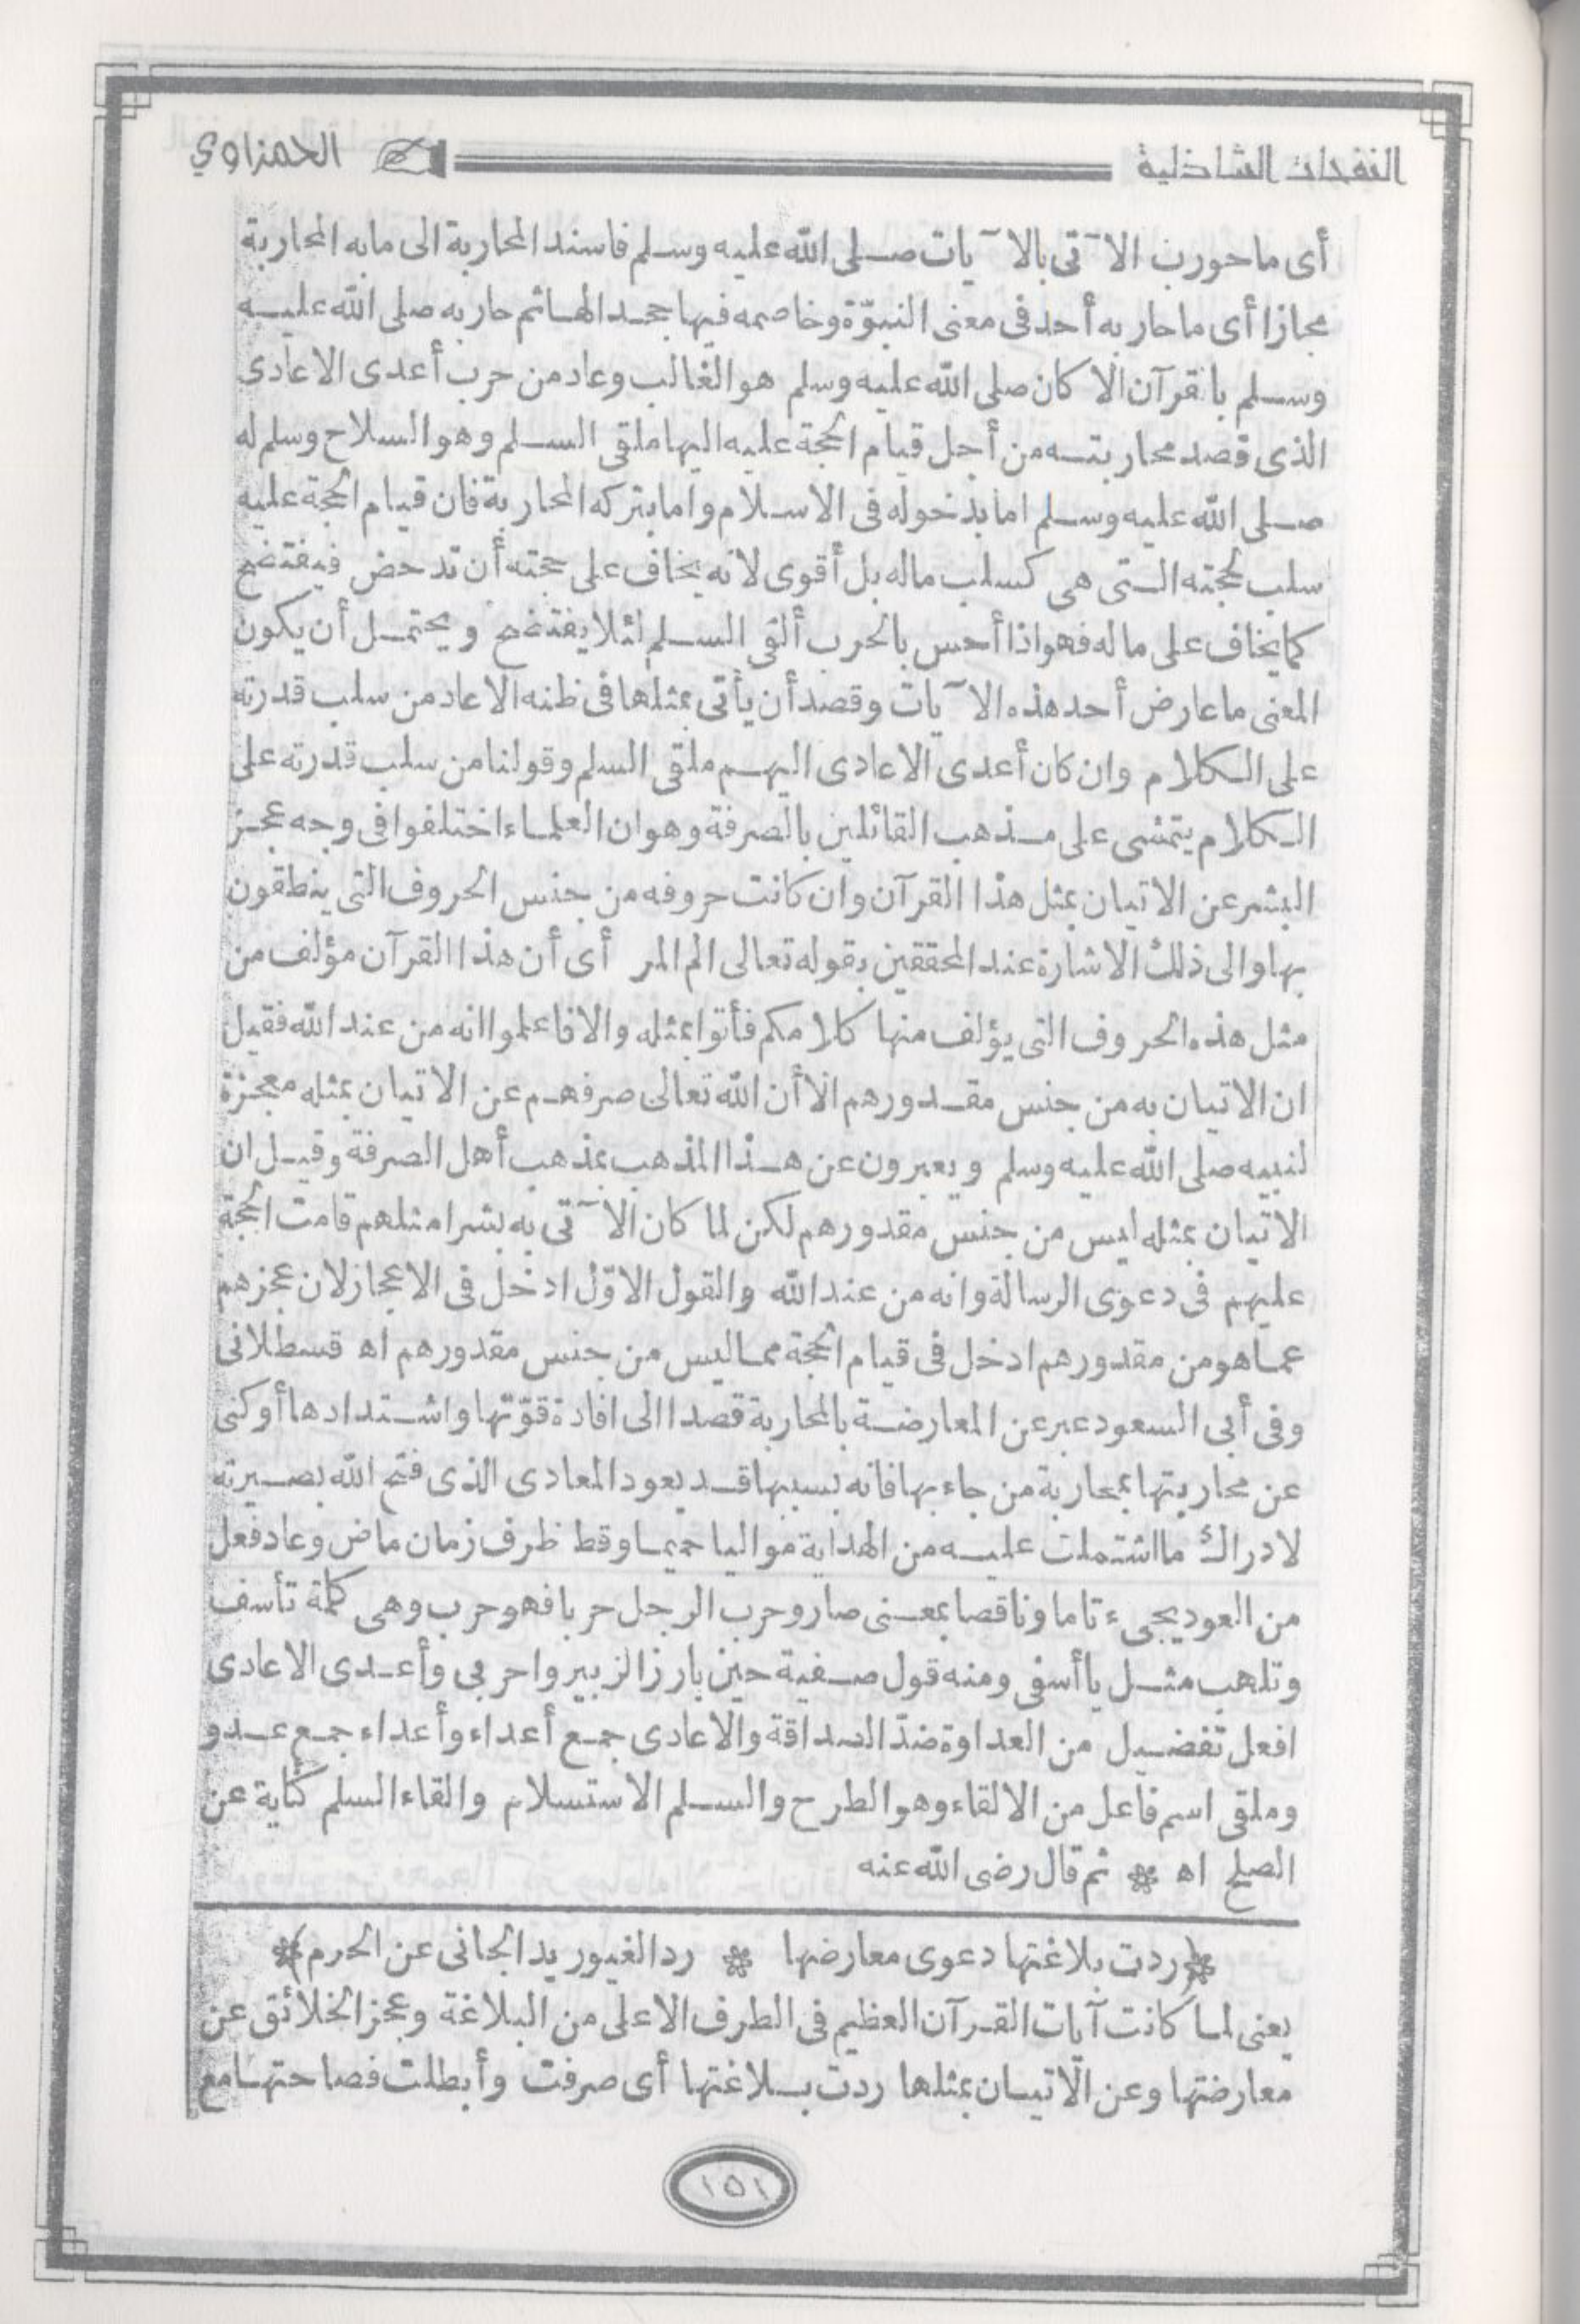 النفحات الشاذلية
الحمزاوي
أى ما حورب الآتى بالآيات صلى الله عليه وسلم فاسند المحاربة الى ما به المحاربة
مجازا أى ما حاربه أحد فى معنى النبوّة وخاصمه فيها جحدا لها ثم حاربه صلى الله عليه
وسلم بالقرآن الا كان صلى الله عليه وسلم هو الغالب وعاد من حرب أعدى الاعادى
الذى قصد محاربته من أجل قيام الحجة عليه اليها ملقى السلم وهو السلاح وسلم له
صلى الله عليه وسلم اما بدخوله فى الاسلام واما بتركه المحاربة فان قيام الحجة عليه
سلب لحجته التى هى كسلب ماله بل أقوى لانه يخاف على حجته أن تدحض فيفتضح
كما يخاف على ماله فهو اذا أحس بالحرب ألقى السلم لئلا يفتضح ويحتمل أن يكون
المعنى ما عارض أحد هذه الآيات وقصد أن يأتى بمثلها فى ظنه الا عاد من سلب قدرته
على الكلام وان كان أعدى الاعادى اليهم ملقى السلم وقولنا من سلب قدرته على
الكلام يتمشى على مذهب القائلين بالصرفة وهو ان العلماء اختلفوا فى وجه عجز
البشر عن الاتيان بمثل هذا القرآن وان كانت حروفه من جنس الحروف التى ينطقون
بها والى ذلك الاشارة عند المحققين بقوله تعالى الم المر أى أن هذا القرآن مؤلف من
مثل هذه الحروف التى يؤلف منها كلامكم فأتوا بمثله والا فاعلموا انه من عند الله فقيل
ان الاتيان به من جنس مقدورهم الا أن الله تعالى صرفهم عن الاتيان بمثله معجزة
لنبيه صلى الله عليه وسلم ويعبرون عن هذا المذهب بمذهب أهل الصرفة وقيل ان
الاتيان بمثله ليس من جنس مقدورهم لكن لما كان الآتى به بشرا مثلهم قامت الحجة
عليهم فى دعوى الرسالة وانه من عند الله والقول الاوّل ادخل فى الاعجاز لان عجزهم
عما هو من مقدورهم ادخل فى قيام الحجة مما ليس من جنس مقدورهم اه قسطلانى
وفى أبى السعود عبر عن المعارضة بالمحاربة قصدا الى افادة قوّتها واشتدادها أو كنى
عن محاربتها بمحاربة من جاء بها فانه بسببها قد يعود المعادى الذى فتح الله بصيرته
لادراك ما اشتملت عليه من الهداية مواليا حميما وقط ظرف زمان ماض وعاد فعل
من العود يجىء تاما وناقصا بمعنى صار وحرب الرجل حربا فهو حرب وهى كلمة تأسف
وتلهب مثل يا أسفى ومنه قول صفية حين بارز الزبير واحربى وأعدى الاعادى
افعل تفضيل من العداوة ضدّ الصداقة والاعادى جمع أعداء وأعداء جمع عدو
وملقى اسم فاعل من الالقاء وهو الطرح والسلم الاستسلام والقاء السلم كناية عن
الصلح اه * ثم قال رضى الله عنه
*(ردت بلاغتها دعوى معارضها * رد الغيور يد الجانى عن الحرم)*
يعنى لما كانت آيات القرآن العظيم فى الطرف الاعلى من البلاغة وعجز الخلائق عن
معارضتها وعن الاتيان بمثلها ردت بلاغتها أى صرفت وأبطلت فصاحتها مع
١٥١